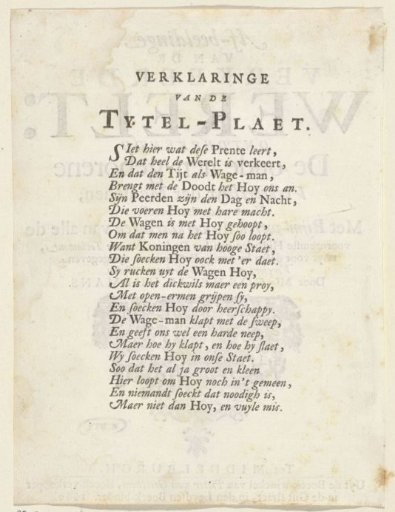 VERKLARINGE
VAN DE
TYTEL-PLAET.
SIet hier wat dese Prente leert,
Dat heel de Werelt is verkeert,
En dat den Tijt als Wage-man,
Brengt met de Doodt het Hoy ons an.
Sijn Peerden zijn den Dag en Nacht,
Die voeren Hoy met hare macht.
De Wagen is met Hoy gehoopt,
Om dat men na het Hoy soo loopt.
Want Koningen van hooge Staet,
Die soecken Hoy oock met'er daet.
Sy rucken uyt de Wagen Hoy,
Al is het dickwils maer een proy,
Met open-ermen grijpen sy,
En soecken Hoy door heerschappy.
De Wage-man klapt met de sweep,
En geeft ons wel een harde neep,
Maer hoe hy klapt, en hoe hy slaet,
Wy soecken Hoy in onse Staet.
Soo dat het al ja groot en kleen
Hier loopt om Hoy noch in't gemeen,
En niemandt soeckt dat noodigh is,
Maer niet dan Hoy, en vuyle mis.